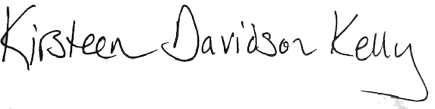 Kirsteen Davidson Kelly